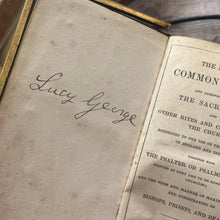 Lucy George
THE
COMMON
AND
THE SACR
AND
OTHER RITES AND C
THE CHUR
ACCORDING TO THE USE OF T
OF ENGLAND AN
TOGETHER WITH
THE PSALTER OR PSALM
POINTED AS THEY ARE TO BE
CHURCHES
AND THE FORM AND MANNER OF MA
AND CONSECRATING OF
BISHOPS, PRIESTS, AND DE